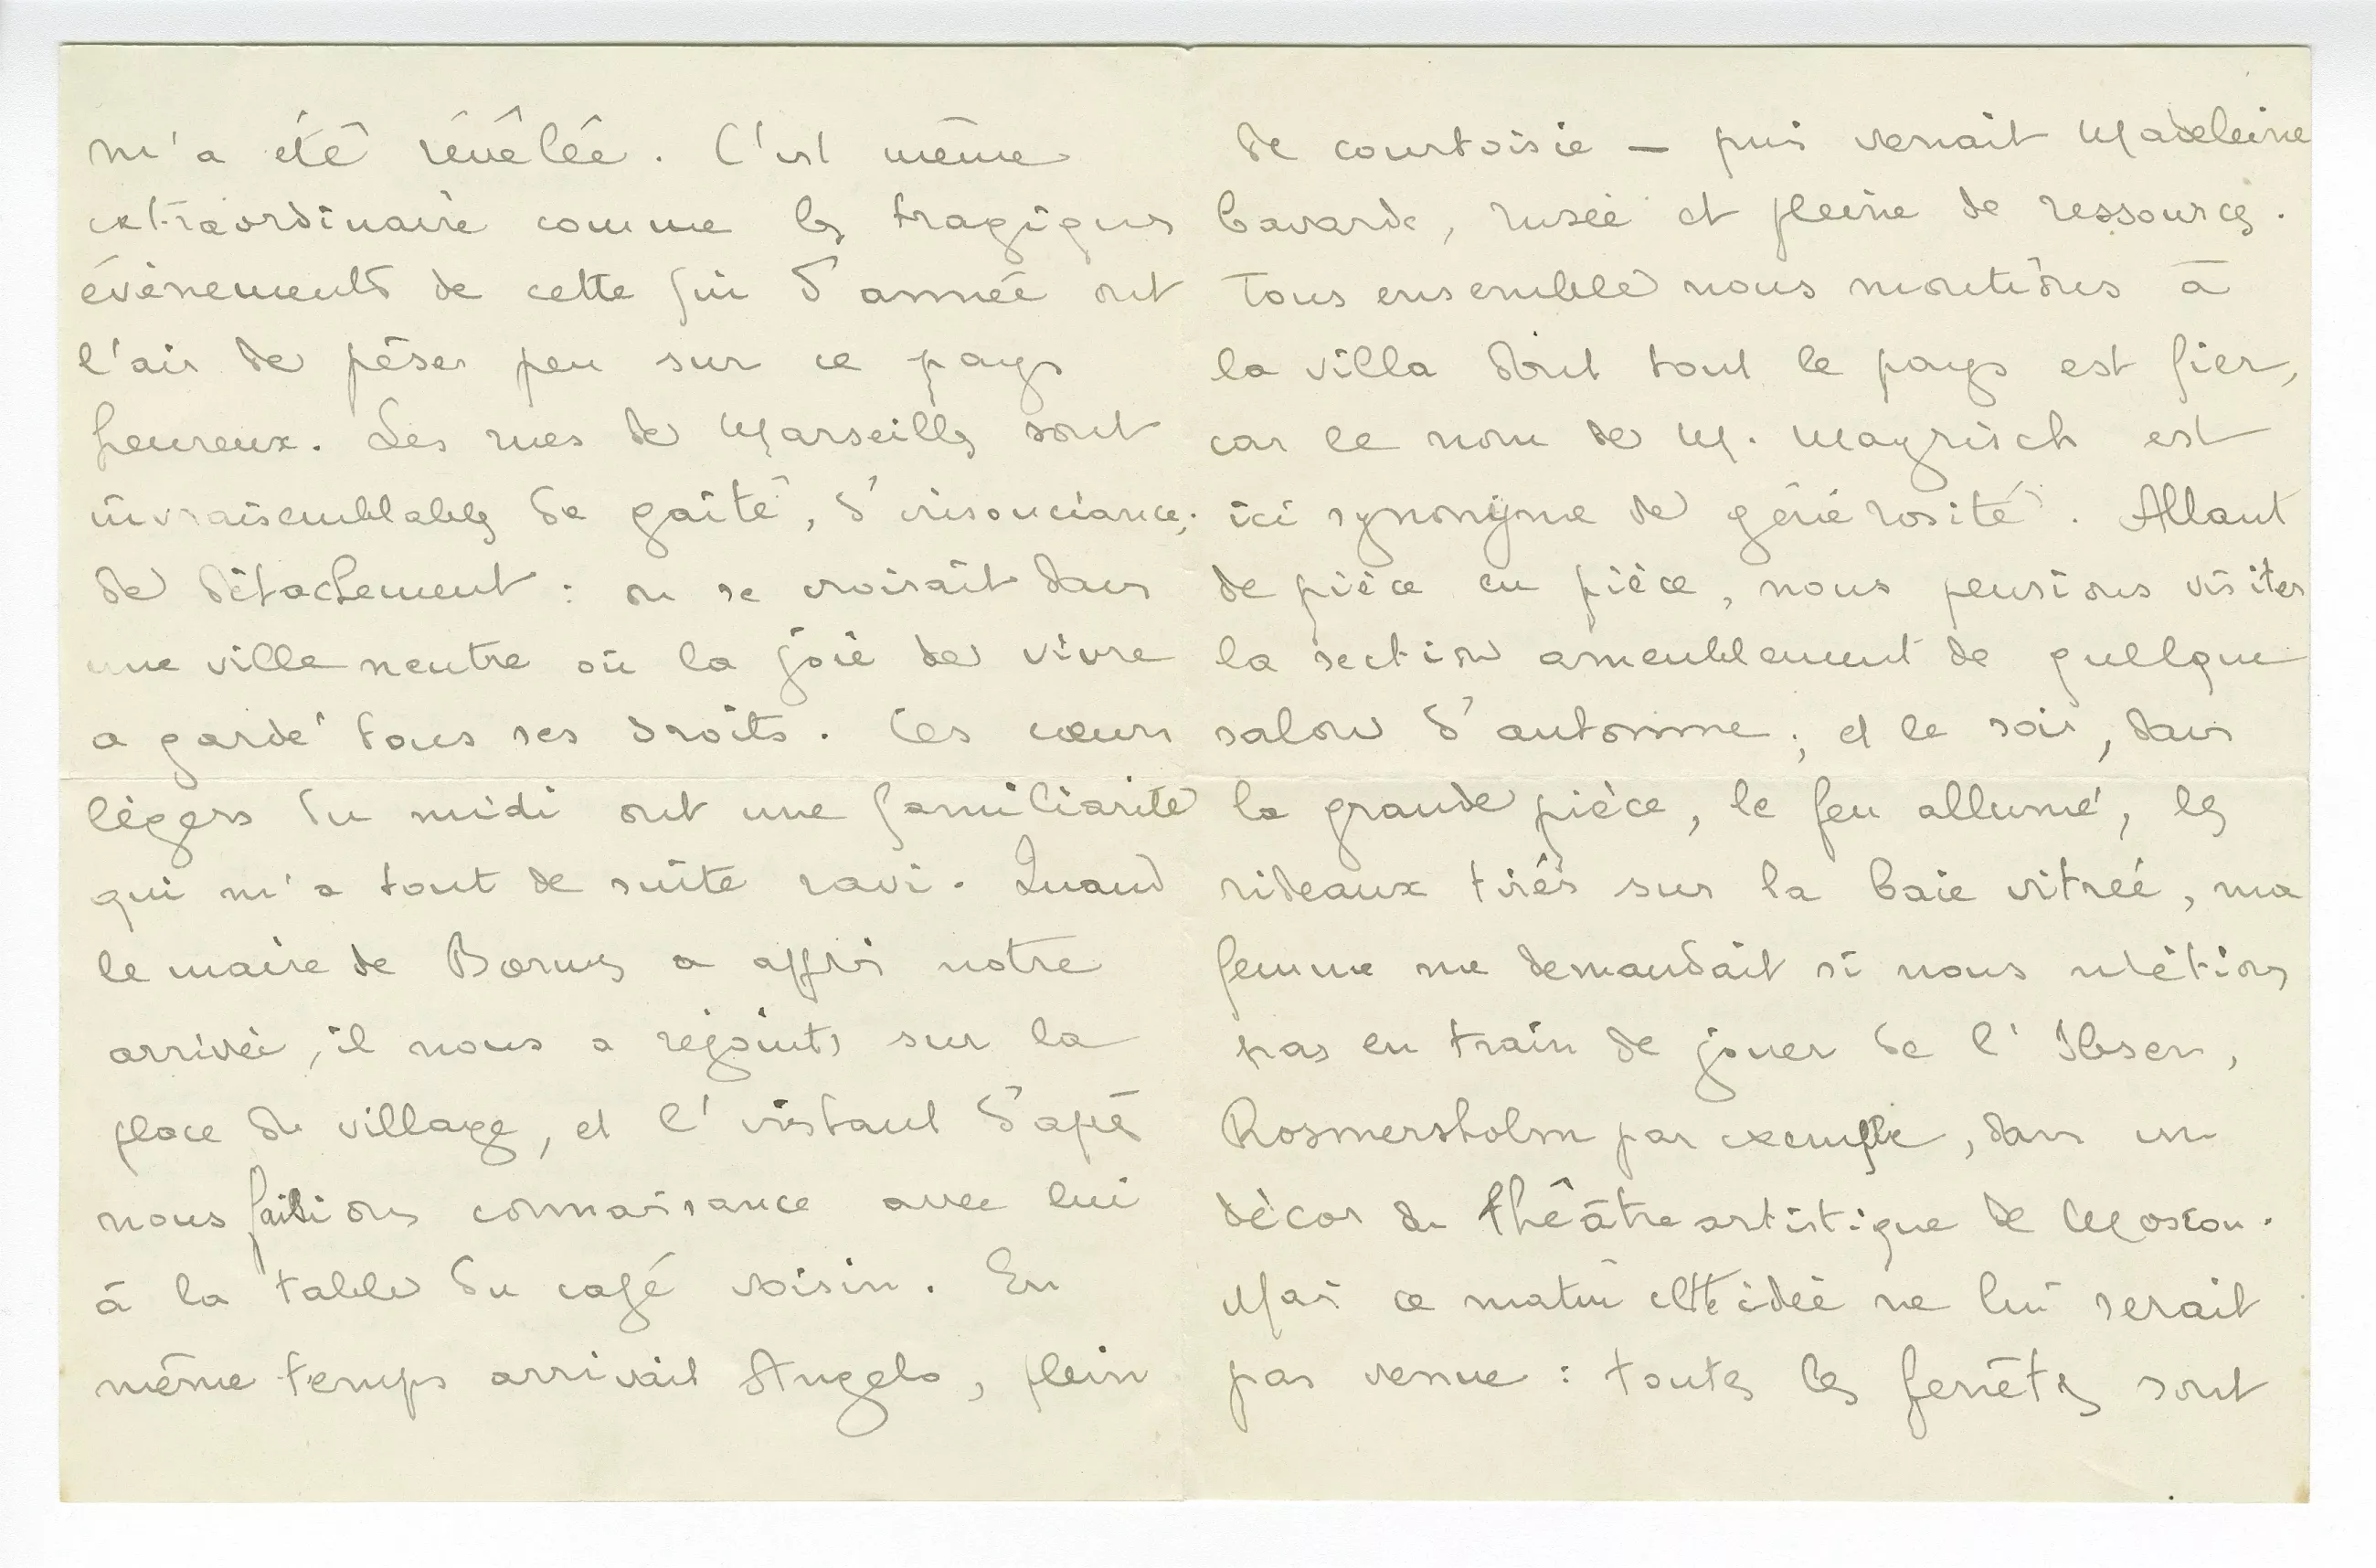 m'a été révélée. C'est même
extraordinaire comme les tragiques
événements de cette fin d'année ont
l'air de péser peu sur ce pays
heureux. Les rues de Marseille sont
invraisemblables de gaîté, d'insouciance,
de détachement : on se croirait dans
une ville neutre où la joie de vivre
a gardé tous ses droits. Ces cœurs
légers du midi ont une familiarité
qui m'a tout de suite ravi. Quand
le maire de Bormes a appris notre
arrivée, il nous a rejoints sur la
place du village, et l'instant d'après
nous faisions connaissance avec lui
à la table du café voisin. En
même temps arrivait Angelo, plein
de courtoisie — puis venait Madeleine
bavarde, rusée et pleine de ressources.
Tous ensemble nous montions à
la villa dont tout le pays est fier,
car le nom de M. Mayrisch est
ici synonyme de générosité. Allant
de pièce en pièce, nous pensions visiter
la section ameublement de quelque
salon d'automne ; et le soir, dans
la grande pièce, le feu allumé, les
rideaux tirés sur la baie vitrée, ma
femme me demandait si nous n'étions
pas en train de jouer de l'Ibsen,
Rosmersholm par exemple, dans un
décor du théâtre artistique de Moscou.
Mais ce matin cette idée ne lui serait
pas venue : toutes les fenêtres sont